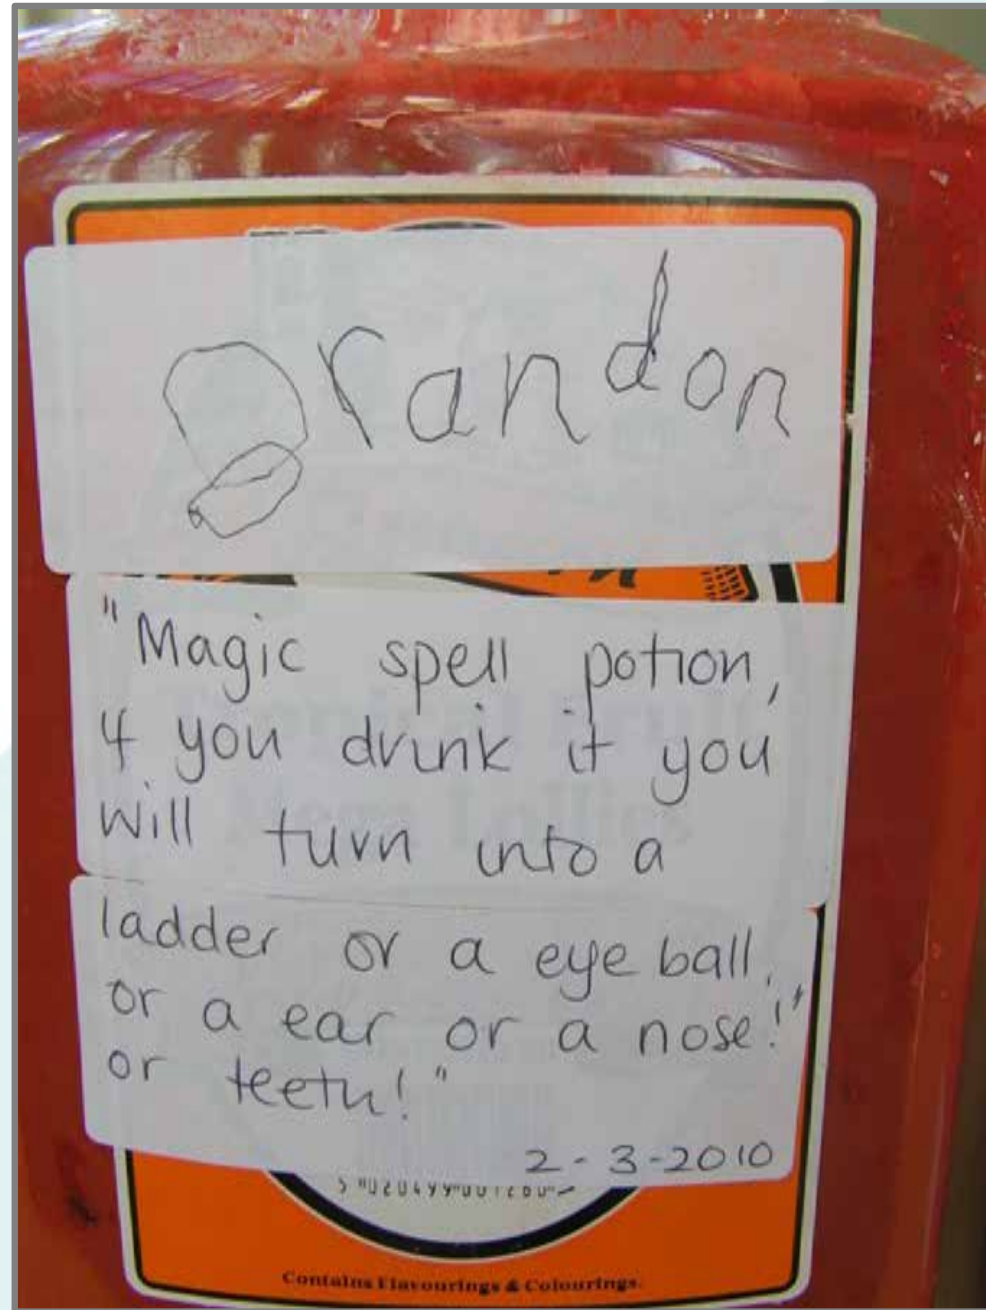 Brandon
"Magic spell potion,
if you drink it you
will turn into a
ladder or a eye ball,
or a ear or a nose!"
or teeth!"
2-3-2010
Contains Flavourings & Colourings.